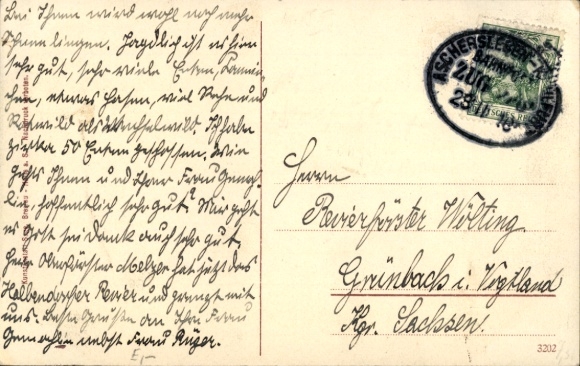 Bei Ihnen wird wohl noch mehr
Schnee liegen. Jagdlich ist es hier
sehr gut, sehr viele Enten, Kanin-
chen, etwas Hasen, viel Rehe und
Rotwild als Wechselwild. Ich habe
zirka 50 Enten geschossen. Wie
gehts Ihnen und Ihrer Frau Gemah-
lin, hoffentlich sehr gut? Mir geht
es Gott sei Dank auch sehr gut.
Herr Oberförster Metzger hat jetzt das
Halbendorfer Revier und grenzt mit
uns. Beste Grüße an Ihre Frau
Gemahlin nebst Frau Rüger.
E,-
ASCHERSLEBEN
BAHNPOST
ZUG
DEUTSCHES REICH
Herrn
Revierförster Wölting
Grünbach i. Vogtland
Kgr. Sachsen.
3202